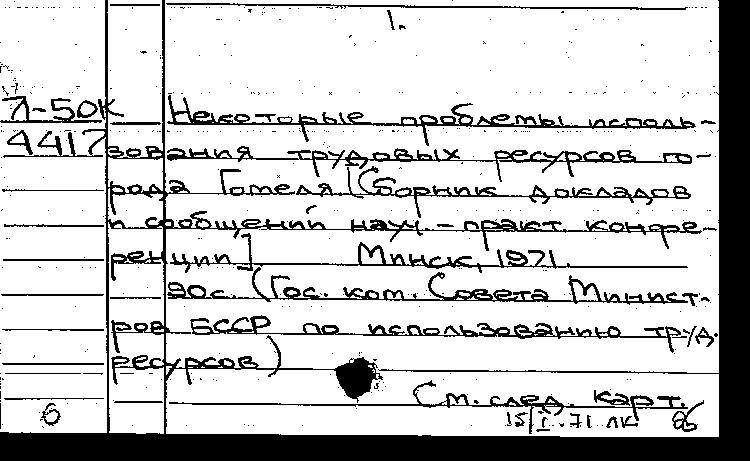 1.
Л-50К Некоторые проблемы исполь-
4417 зования трудовых ресурсов го-
рода Гомеля [Сборник докладов
и сообщений науч.-практ. конфе-
ренции]. Минск, 1971.
90с. (Гос. ком. Совета Минист-
ров БССР по использованию труд.
ресурсов)
См. след. карт.
б 15/I.71 ЛК 86